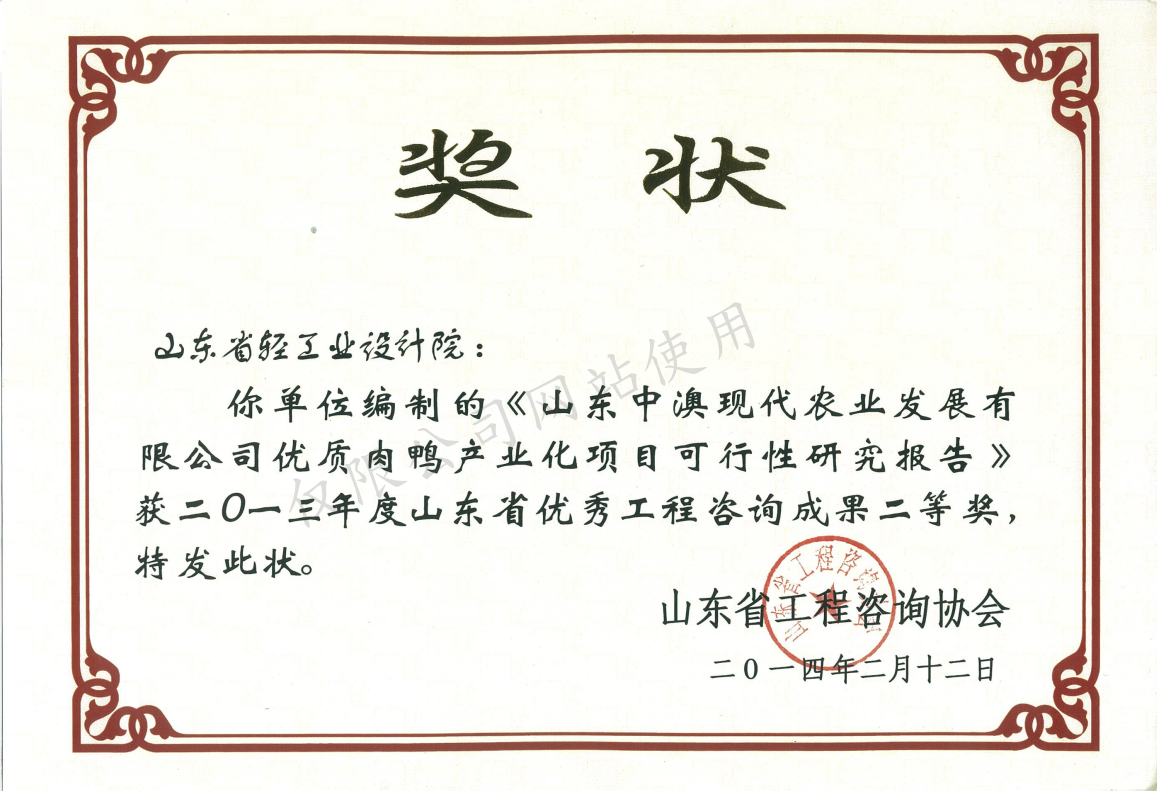 奖状
山东省轻工业设计院：
你单位编制的《山东中澳现代农业发展有
限公司优质肉鸭产业化项目可行性研究报告》
获二〇一三年度山东省优秀工程咨询成果二等奖，
特发此状。
山东省工程咨询协会
二〇一四年二月十二日
仅限公司网站使用
山东省工程咨询协会